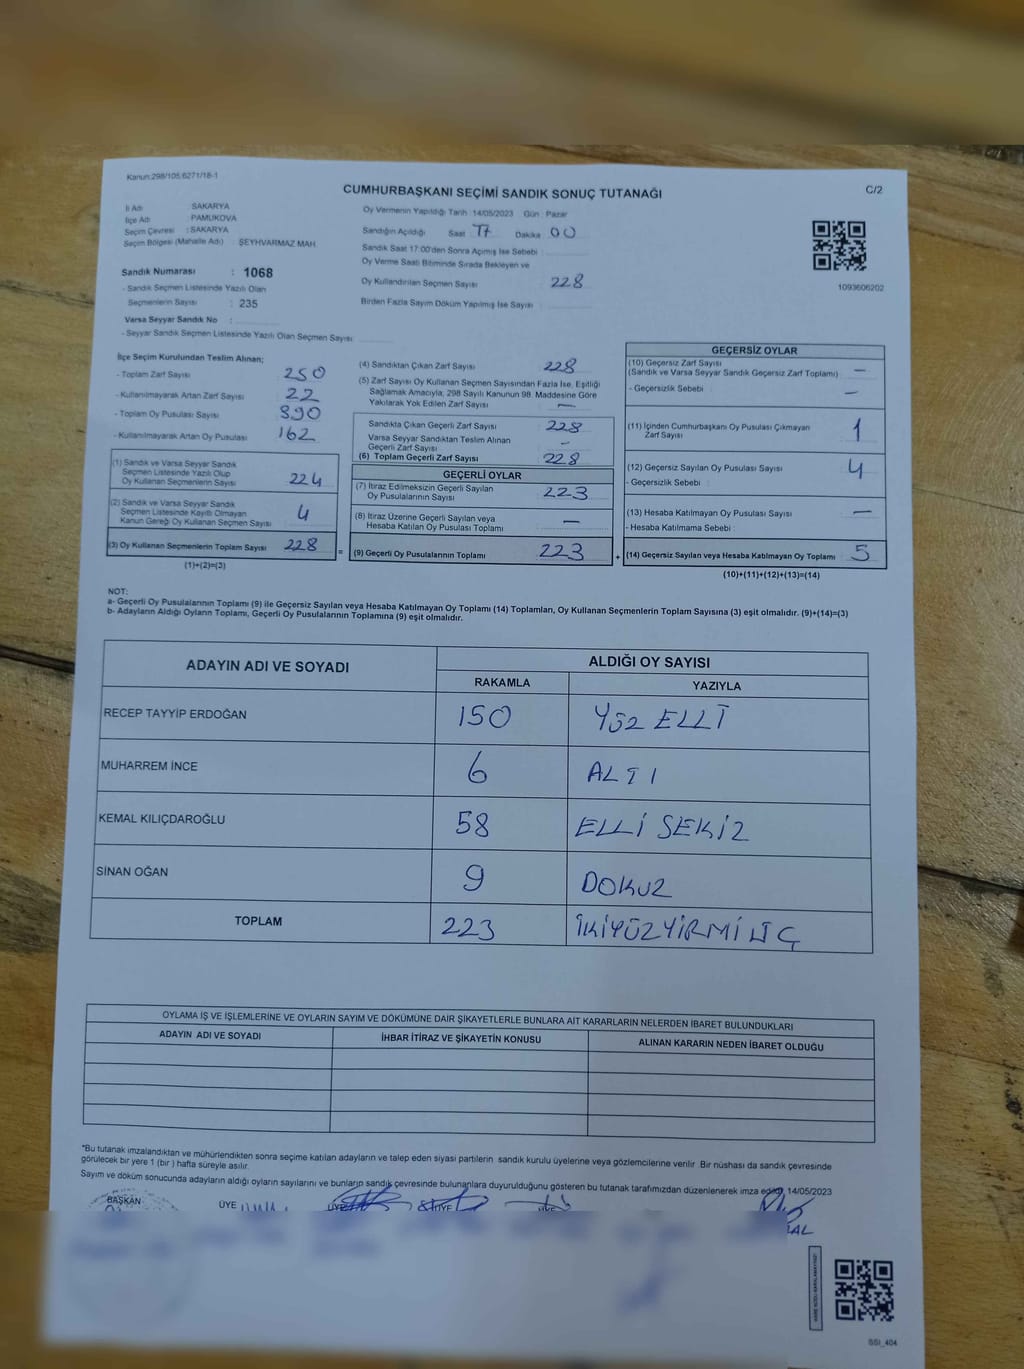 Kanun:298/105;6271/18-1
CUMHURBAŞKANI SEÇİMİ SANDIK SONUÇ TUTANAĞI
C/2
İl Adı : SAKARYA
İlçe Adı : PAMUKOVA
Seçim Çevresi : SAKARYA
Seçim Bölgesi (Mahalle Adı) : ŞEYHVARMAZ MAH.
Sandık Numarası : 1068
- Sandık Seçmen Listesinde Yazılı Olan
Seçmenlerin Sayısı : 235
Varsa Seyyar Sandık No :
- Seyyar Sandık Seçmen Listesinde Yazılı Olan Seçmen Sayısı:
Oy Vermenin Yapıldığı Tarih :14/05/2023 Gün : Pazar
Sandığın Açıldığı Saat 17 Dakika 00
Sandık Saat 17:00'den Sonra Açımış İse Sebebi :
Oy Verme Saati Bitiminde Sırada Bekleyen ve
Oy Kullandırılan Seçmen Sayısı 228
Birden Fazla Sayım Döküm Yapılmış İse Sayısı :
1093606202
İlçe Seçim Kurulundan Teslim Alınan;
- Toplam Zarf Sayısı 250
- Kullanılmayarak Artan Zarf Sayısı 22
- Toplam Oy Pusulası Sayısı 390
- Kullanılmayarak Artan Oy Pusulası 162
(1) Sandık ve Varsa Seyyar Sandık
Seçmen Listesinde Yazılı Olup
Oy Kullanan Seçmenlerin Sayısı 224
(2) Sandık ve Varsa Seyyar Sandık
Seçmen Listesinde Kayıtlı Olmayan
Kanun Gereği Oy Kullanan Seçmen Sayısı 4
(3) Oy Kullanan Seçmenlerin Toplam Sayısı 228
(1)+(2)=(3)
(4) Sandıktan Çıkan Zarf Sayısı 228
(5) Zarf Sayısı Oy Kullanan Seçmen Sayısından Fazla İse, Eşitliği
Sağlamak Amacıyla, 298 Sayılı Kanunun 98. Maddesine Göre
Yakılarak Yok Edilen Zarf Sayısı —
Sandıkta Çıkan Geçerli Zarf Sayısı 228
Varsa Seyyar Sandıktan Teslim Alınan
Geçerli Zarf Sayısı —
(6) Toplam Geçerli Zarf Sayısı 228
GEÇERLİ OYLAR
(7) İtiraz Edilmeksizin Geçerli Sayılan
Oy Pusulalarının Sayısı 223
(8) İtiraz Üzerine Geçerli Sayılan veya
Hesaba Katılan Oy Pusulası Toplamı —
= (9) Geçerli Oy Pusulalarının Toplamı 223
GEÇERSİZ OYLAR
(10) Geçersiz Zarf Sayısı
(Sandık ve Varsa Seyyar Sandık Geçersiz Zarf Toplamı) —
- Geçersizlik Sebebi : —
(11) İçinden Cumhurbaşkanı Oy Pusulası Çıkmayan
Zarf Sayısı 1
(12) Geçersiz Sayılan Oy Pusulası Sayısı 4
- Geçersizlik Sebebi :
(13) Hesaba Katılmayan Oy Pusulası Sayısı —
- Hesaba Katılmama Sebebi :
+ (14) Geçersiz Sayılan veya Hesaba Katılmayan Oy Toplamı 5
(10)+(11)+(12)+(13)=(14)
NOT:
a- Geçerli Oy Pusulalarının Toplamı (9) ile Geçersiz Sayılan veya Hesaba Katılmayan Oy Toplamı (14) Toplamları, Oy Kullanan Seçmenlerin Toplam Sayısına (3) eşit olmalıdır. (9)+(14)=(3)
b- Adayların Aldığı Oyların Toplamı, Geçerli Oy Pusulalarının Toplamına (9) eşit olmalıdır.
ADAYIN ADI VE SOYADI
ALDIĞI OY SAYISI
RAKAMLA YAZIYLA
RECEP TAYYİP ERDOĞAN 150 YÜZ ELLİ
MUHARREM İNCE 6 ALTI
KEMAL KILIÇDAROĞLU 58 ELLİ SEKİZ
SİNAN OĞAN 9 DOKUZ
TOPLAM 223 İKİYÜZYİRMİ ÜÇ
OYLAMA İŞ VE İŞLEMLERİNE VE OYLARIN SAYIM VE DÖKÜMÜNE DAİR ŞİKAYETLERLE BUNLARA AİT KARARLARIN NELERDEN İBARET BULUNDUKLARI
ADAYIN ADI VE SOYADI İHBAR İTİRAZ VE ŞİKAYETİN KONUSU ALINAN KARARIN NEDEN İBARET OLDUĞU
*Bu tutanak imzalandıktan ve mühürlendikten sonra seçime katılan adayların ve talep eden siyasi partilerin sandık kurulu üyelerine veya gözlemcilerine verilir. Bir nüshası da sandık çevresinde
görülecek bir yere 1 (bir ) hafta süreyle asılır.
Sayım ve döküm sonucunda adayların aldığı oyların sayılarını ve bunların sandık çevresinde bulunanlara duyurulduğunu gösteren bu tutanak tarafımızdan düzenlenerek imza edildi. 14/05/2023
BAŞKAN ÜYE ÜYE ÜYE ÜYE
SSI_404